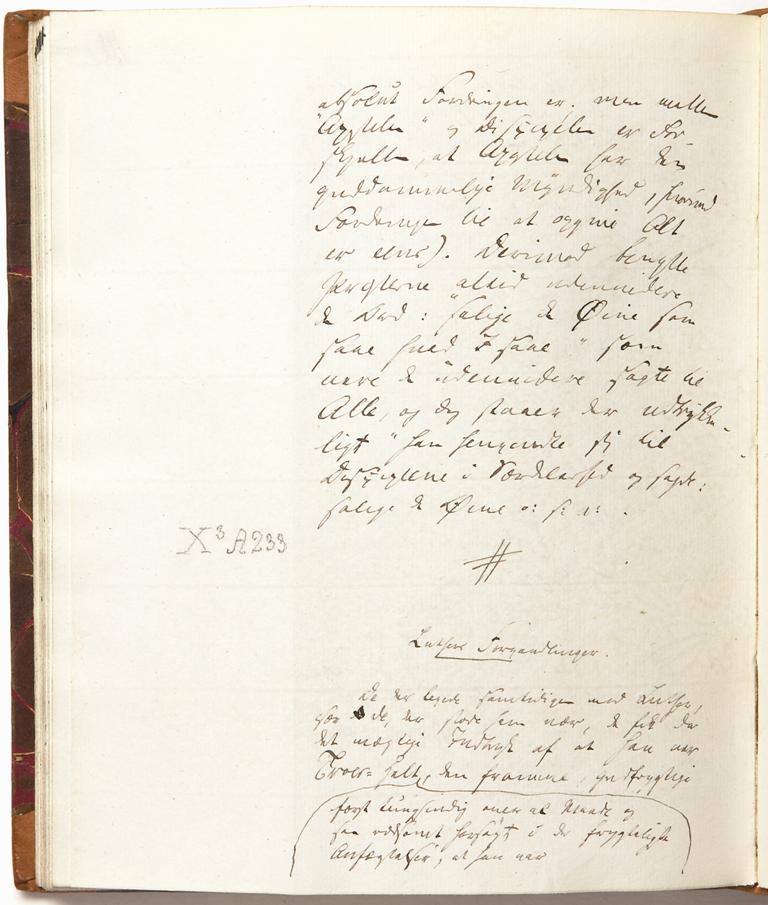 absolut Fordringen er. men mellem
"Apostelen" og Discipelen er For
skjellen, at Apostelen har den
guddommelige Myndighed, hvorimod
Fordringen til at opgive Alt
er eens). Derimod benytte
Præsterne altid udenvidere
de Ord: "salige de Øine som
saae hvad I saae" som
vare de udenvidere sagte til
Alle, og dog staaer der udtrykke-
ligt "han henvendte sig til
Disciplene i Særdeleshed og sagde:
salige de Øine o: s: v: .
X³ A233
Luthers Forvandlinger.
De der levede samtidigen med Luther,
især de, der stode ham nær, de fik da
det mægtige Indtryk af at han var
Troes-Helt, den fromme, gudfrygtige
først tungsindig over al Maade og
saa rædsomt forsøgt i de frygteligste
Anfægtelser, at han var